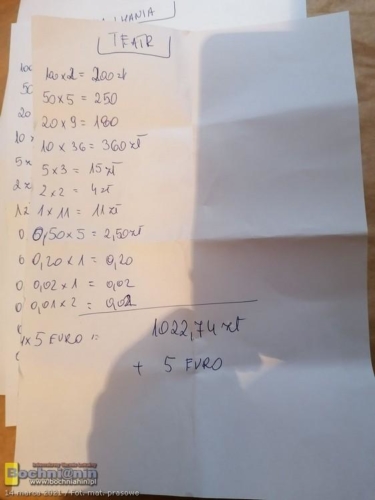 KANIA
TEATR
100 x 2 = 200 zł
50 x 5 = 250
20 x 9 = 180
10 x 36 = 360 zł
5 x 3 = 15 zł
2 x 2 = 4 zł
1 x 11 = 11 zł
0,50 x 5 = 2,50 zł
0,20 x 1 = 0,20
0,02 x 1 = 0,02
0,01 x 2 = 0,02
1022,74 zł
1 x 5 EURO =
+ 5 EURO
Bochnianin
www.bochnianin.pl
14 marca 2021 / Fot. mat. prasowe